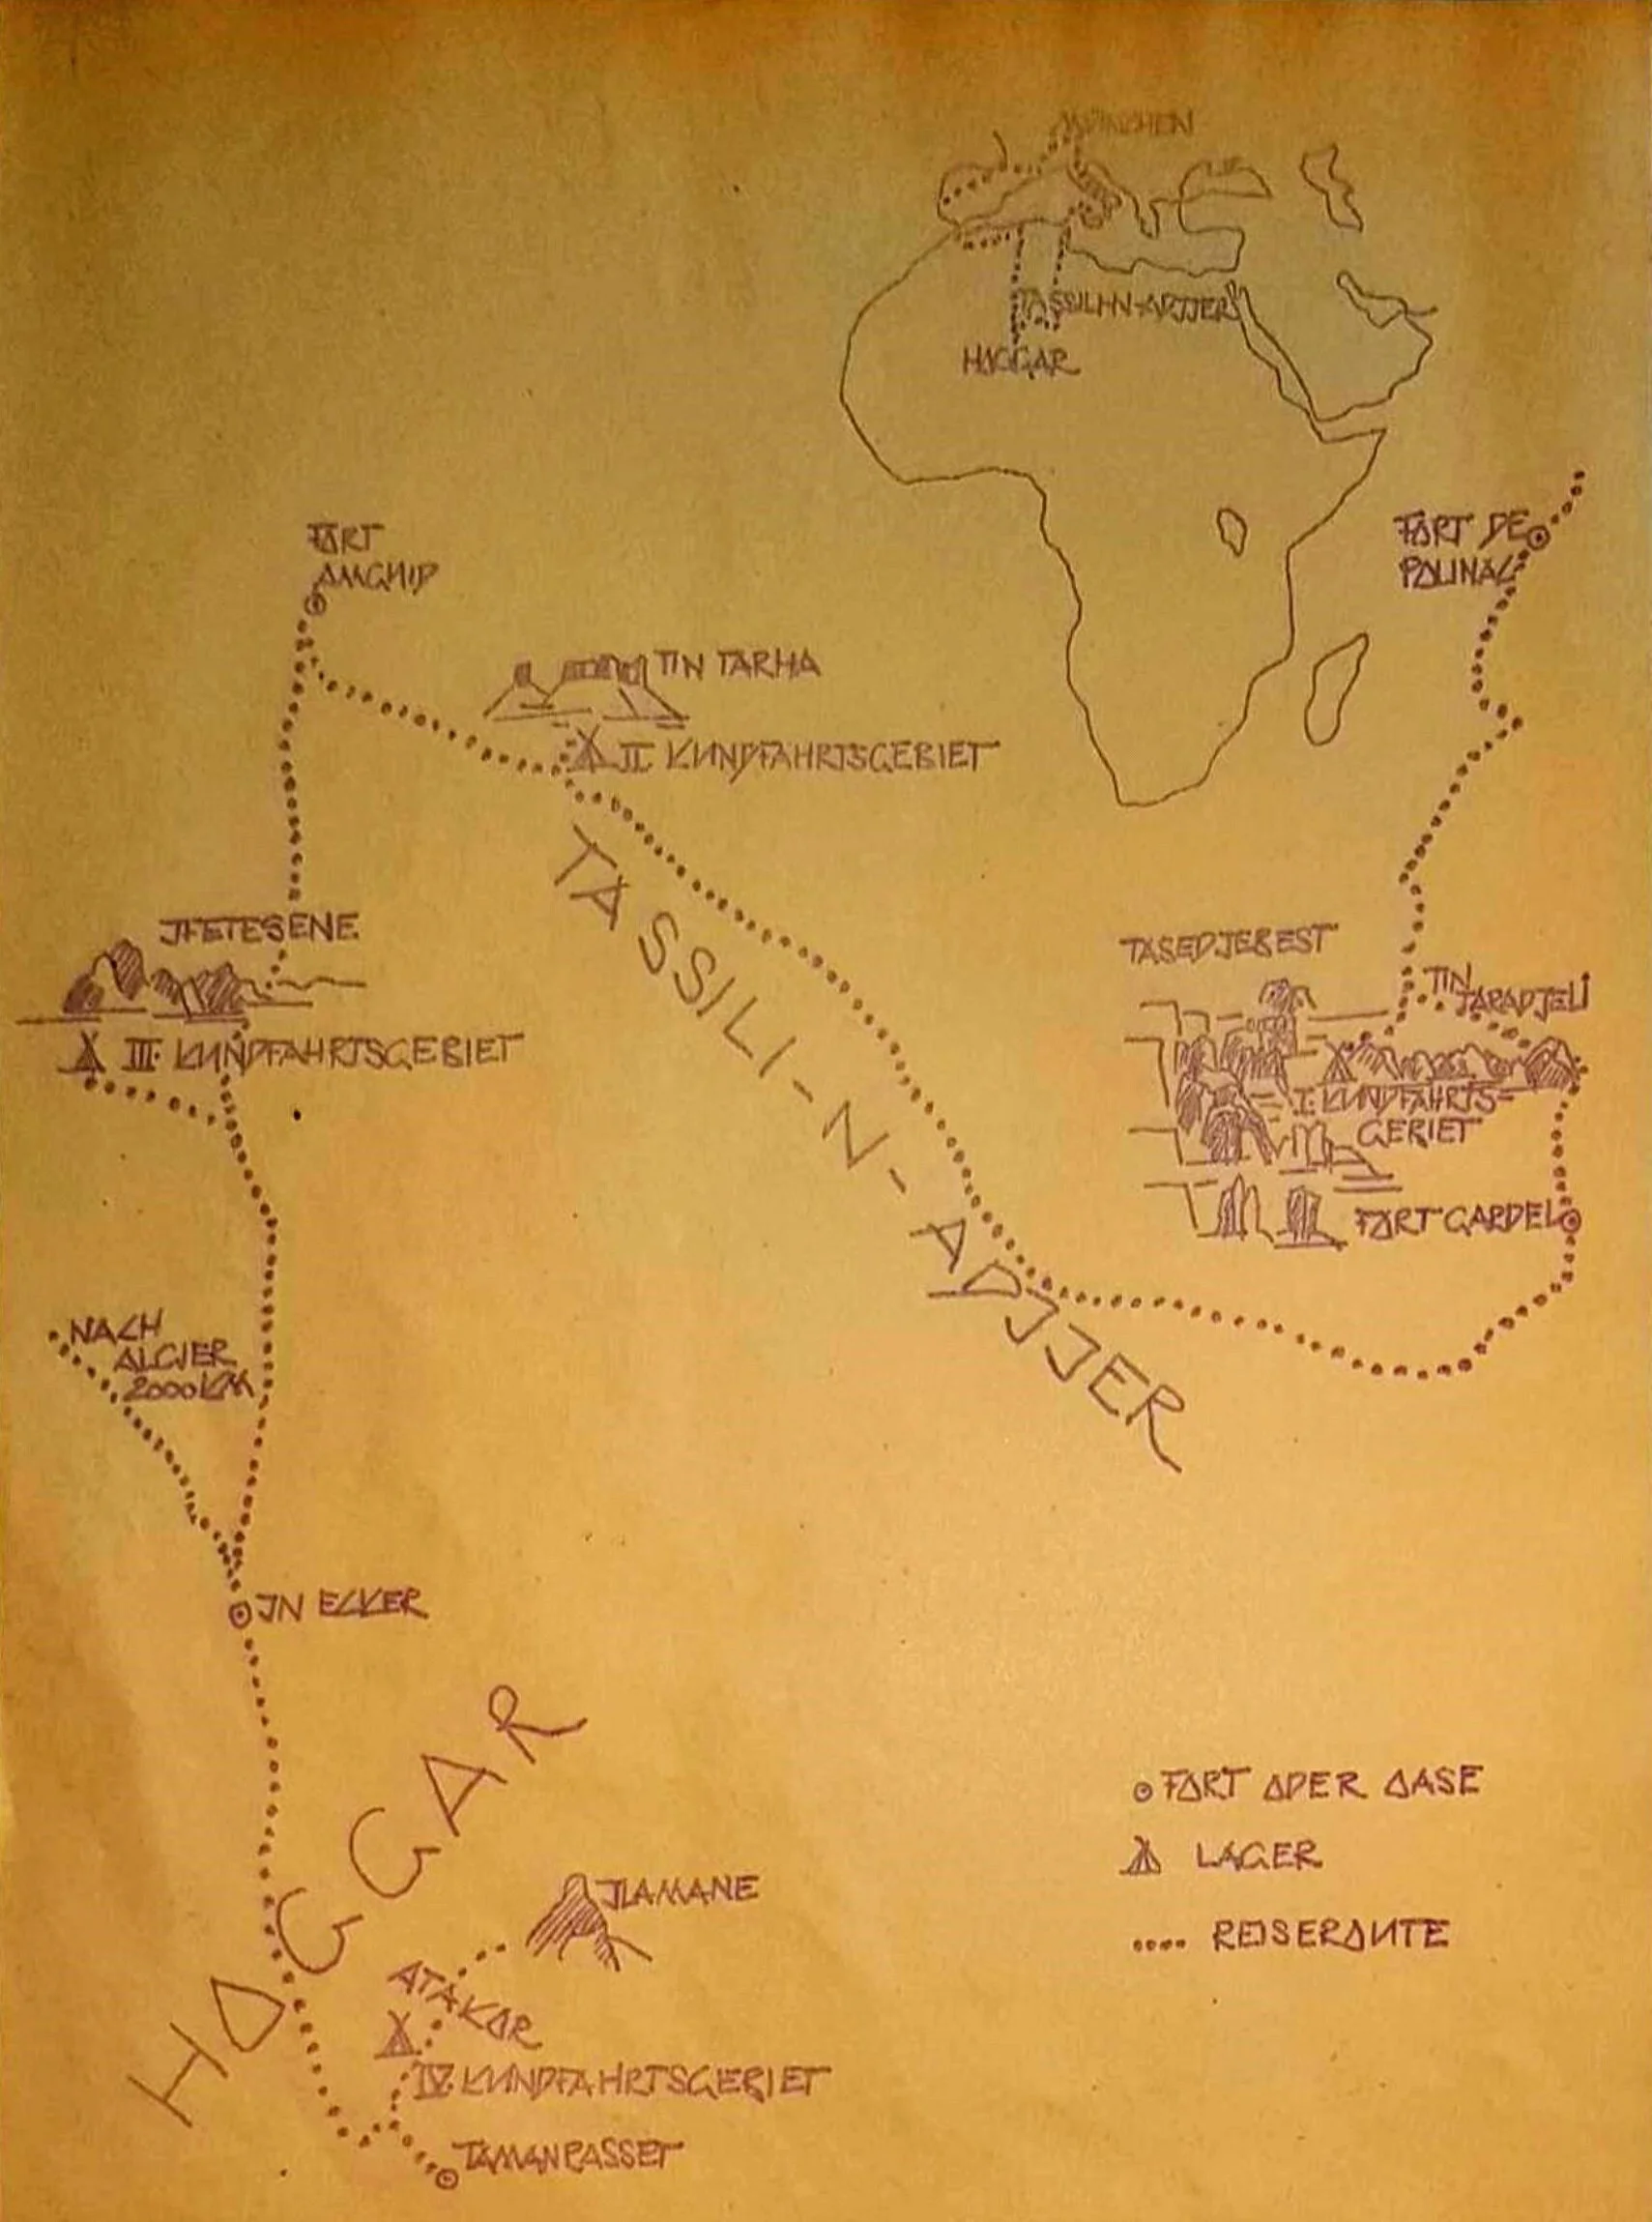 MÜNCHEN
TASSILI-N-ADJJER
HOGGAR
FORT DE
POLINAC
FORT
AMGHID
TIN TARHA
II KUNDFAHRTSGEBIET
TASSILI-N-ADJJER
JFETESENE
III. KUNDFAHRTSGEBIET
TASEDJEBEST
TIN
TARADJELI
I. KUNDFAHRTS-
GEBIET
FORT GARDEL
NACH
ALGJER
2000 KM
JN ECKER
HOGGAR
JLAMANE
ATAKOR
IV. KUNDFAHRTSGEBIET
TAMANRASSET
FORT ODER OASE
LAGER
.... REJSEROUTE